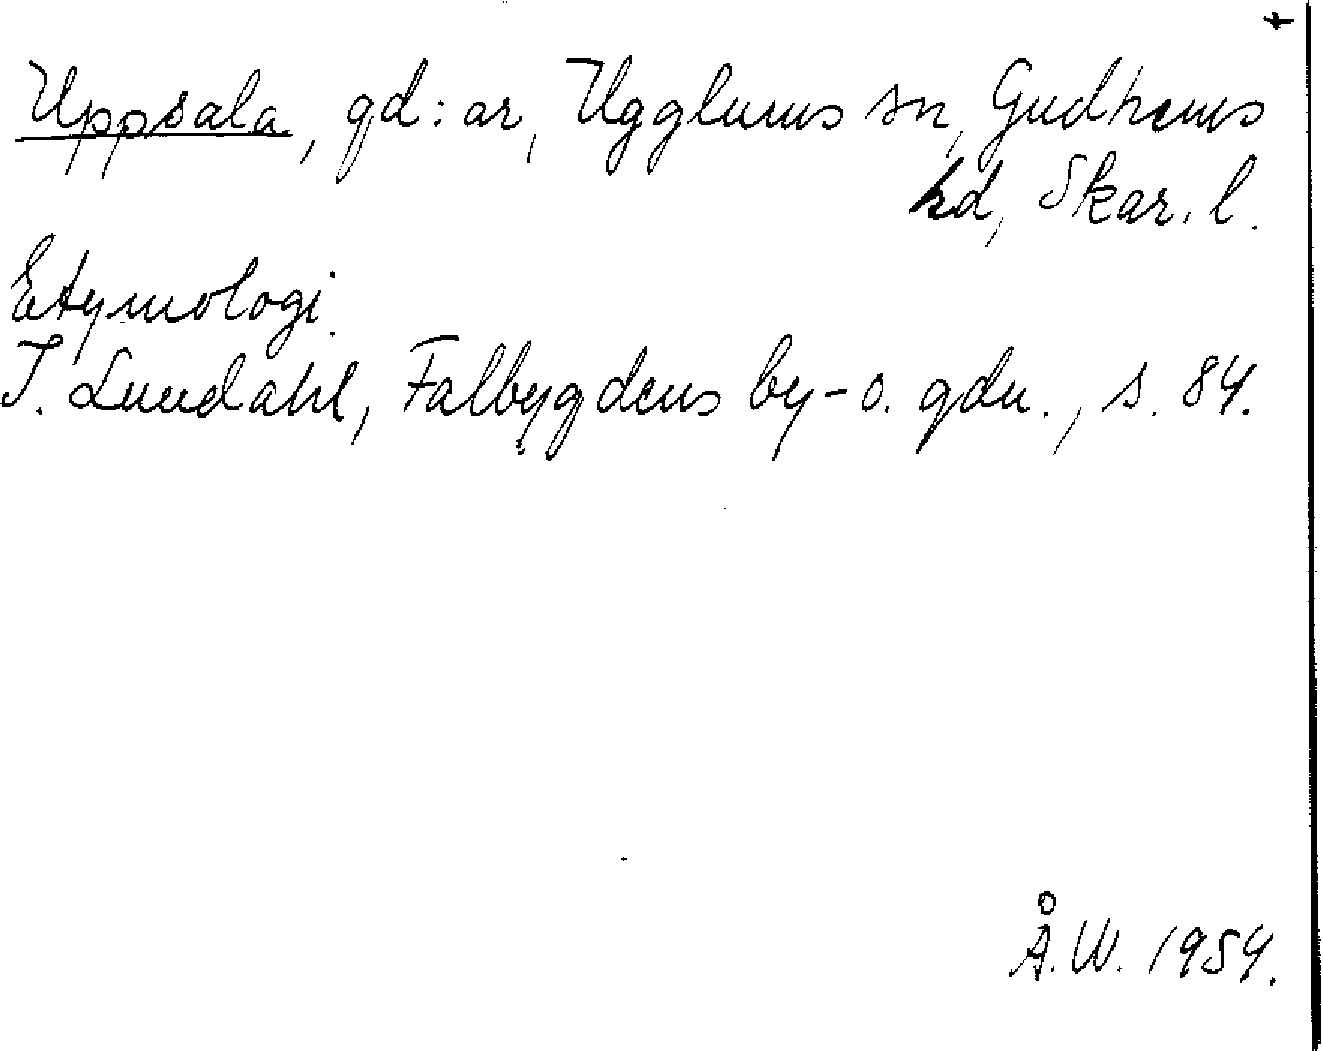 +
Uppsala, gd:ar, Ugglums sn, Gudhems
hd, Skar. l.
Etymologi.
I. Lundahl, Falbygdens by- o. gdn., s. 84.
Å.W. 1954.